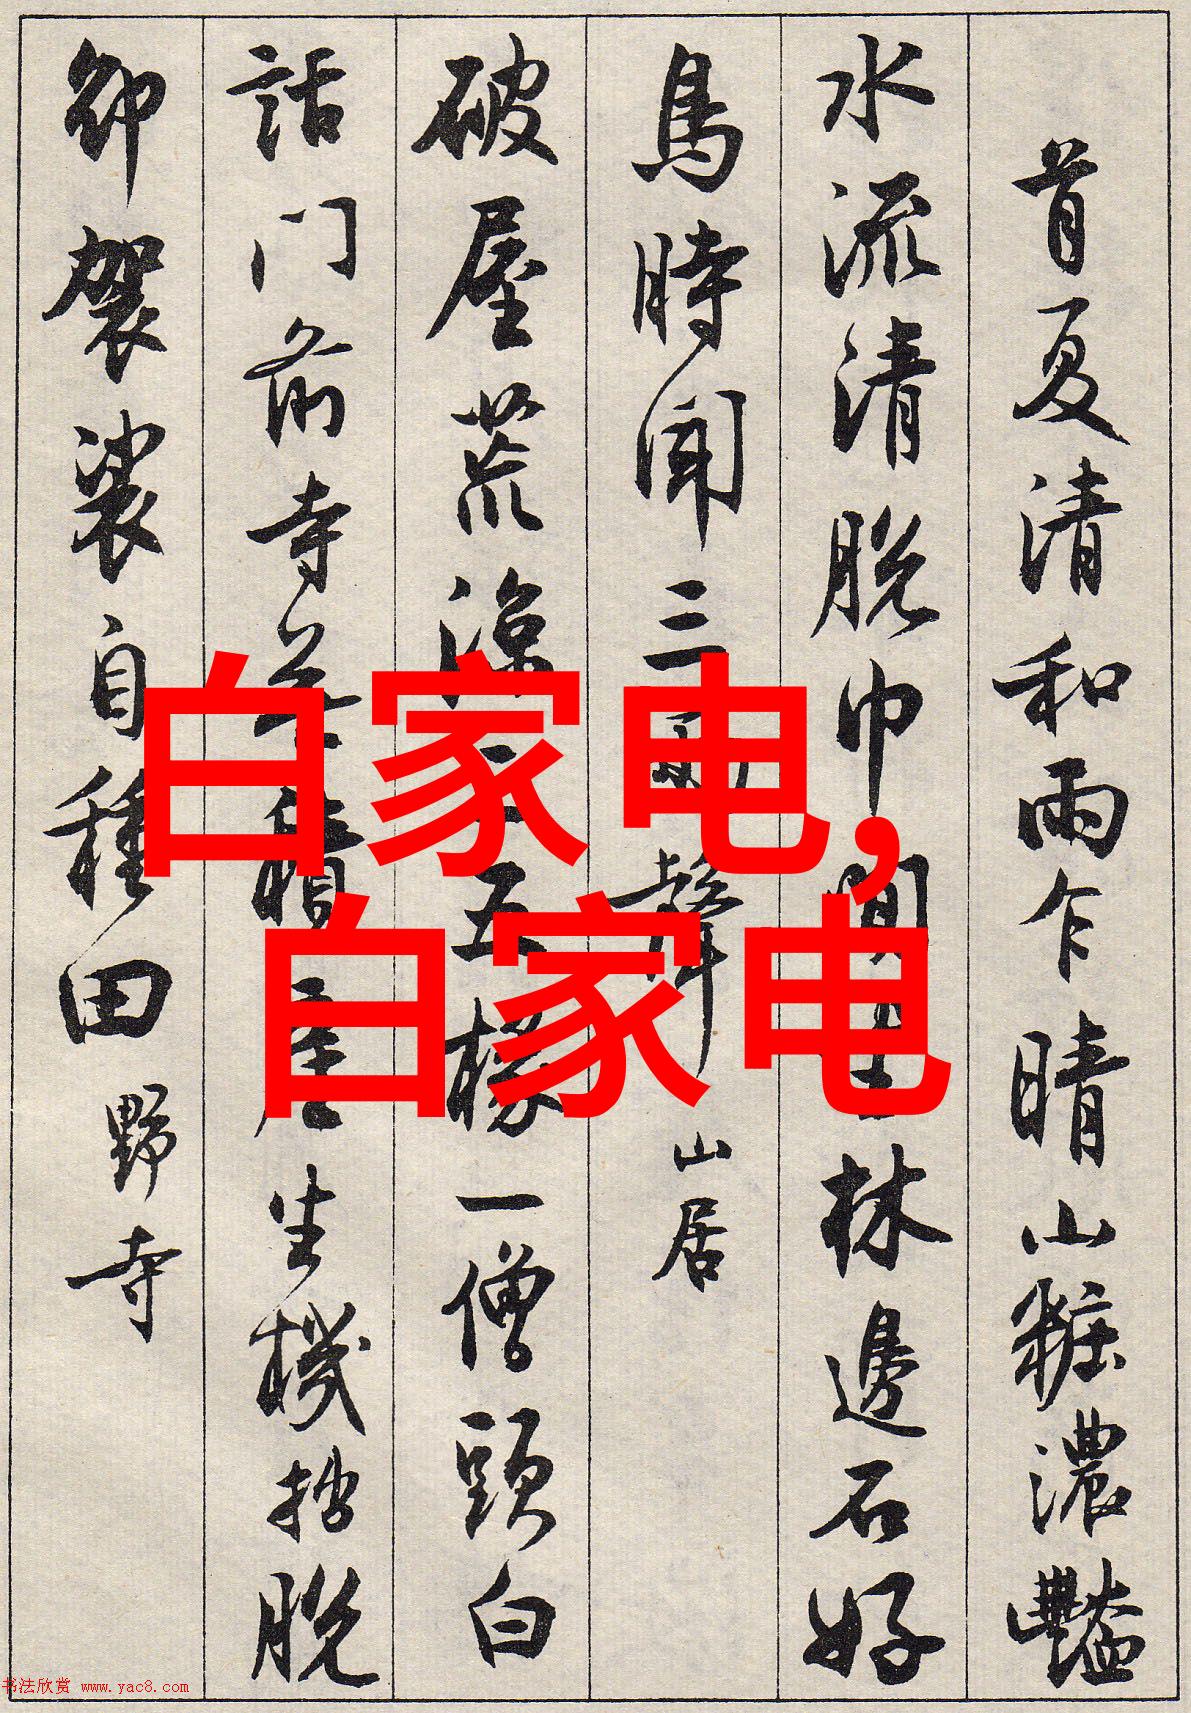 首夏清和雨乍晴山粧濃豔
水流清脱巾林邊石好
鳥時聞三聲
山居
破屋荒涼五椽一僧頭白
話门前寺生機拙脱
卻袈裟自種田
野寺
白家电,
白家电
书法欣赏 www.yac8.com